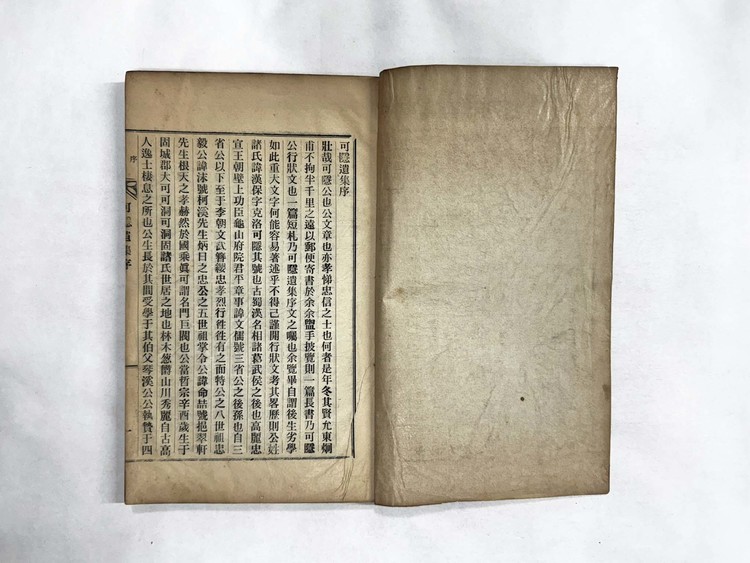 可隱遺集序
壯哉可隱公也公文章也亦孝悌忠信之士也何者是年冬其賢允東炯
甫不拘半千里之遠以郵便寄書於余余盥手披覽則一篇長書乃可隱
公行狀文也一篇短札乃可隱遺集序文之囑也余覽畢自謂後生劣學
如此重大文字何能容易著述乎不得已謹開行狀文考其畧歷則公姓
諸氏諱漢保字克洛可隱其號也古蜀漢名相諸葛武侯之後也高麗忠
宣王朝壁上功臣龜山府院君平章事諱文儒號三省公之後孫也自三
省公以下至于李朝文武簪纓忠孝烈行徃徃有之而特公之八世祖忠
毅公諱沫號柯溪先生炳日之忠公之五世祖掌令公諱命喆號挹翠軒
先生根天之孝赫然於國乘眞可謂名門巨閥也公當哲宗辛酉歲生于
固城郡大可可洞可洞固諸氏世居之地也林木葱欝山川秀麗自古高
人逸士棲息之所也公生長於其間受學于其伯父琴溪公公執贄于四
序
可隱遺集序